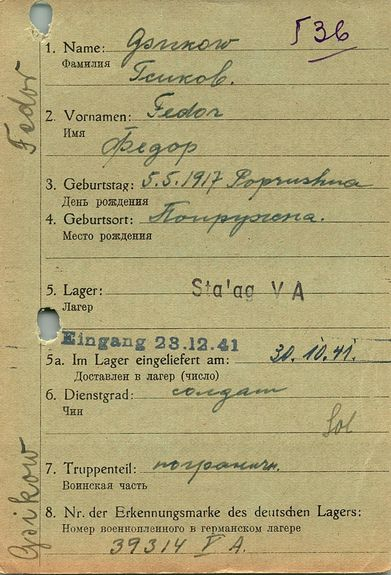 Г 36
1. Name: Gsikow
Фамилия Гсиков.
2. Vornamen: Fedor
Имя Федор
3. Geburtstag: 5.5.1917 Poprushna
День рождения
4. Geburtsort: Попружена.
Место рождения
5. Lager: Stalag V A
Лагер
Eingang 23.12.41
5a. Im Lager eingeliefert am: 30.10.41.
Доставлен в лагер (число)
6. Dienstgrad: солдат
Чин Sol
7. Truppenteil: погранич.
Воинская часть
8. Nr. der Erkennungsmarke des deutschen Lagers:
Номер военнопленного в германском лагере
39314 V A.
Gsikow Fedor